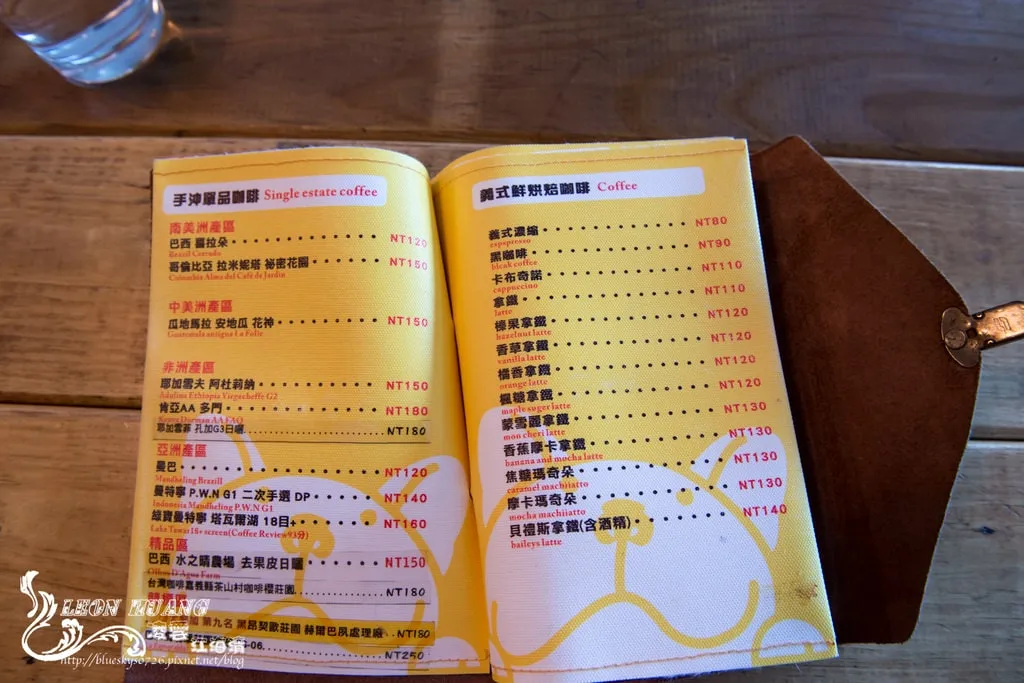 手沖單品咖啡 Single estate coffee
南美洲產區
巴西 羅拉朵 NT120
Brazil Cerrado
哥倫比亞 拉米妮塔 祕密花園 NT150
Colombia Alma del Café de Jardin
中美洲產區
瓜地馬拉 安地瓜 花神 NT150
Guatemala antigua La Folie
非洲產區
耶加雪夫 阿杜莉納 NT150
Adulina Ethiopia Yirgacheffe G2
肯亞AA 多門 NT180
Kenya Dorman AA FAQ
耶加雪菲 孔加G3日曬 NT180
亞洲產區
曼巴 NT120
Mandheling Brazill
曼特寧 P.W.N G1 二次手選 DP NT140
Indonesia Mandheling P.W.N G1
綠寶曼特寧 塔瓦爾湖 18目+ NT160
Lake Tawar18+ screen(Coffee Review93分)
精品區
巴西 水之晴農場 去果皮日曬 NT150
Olhos D'Agua Farm
台灣咖啡嘉義縣茶山村咖啡櫻莊園 NT180
第九名 黑昂契歐莊園 赫爾巴夙處理廠 NT180
-06 NT250
義式鮮烘焙咖啡 Coffee
義式濃縮 NT80
espspresso
黑咖啡 NT90
bleak coffee
卡布奇諾 NT110
cappuccino
拿鐵 NT110
latte
榛果拿鐵 NT120
hazelnut latte
香草拿鐵 NT120
vanilla latte
橙香拿鐵 NT120
orange latte
楓糖拿鐵 NT120
maple suger latte
蒙雪麗拿鐵 NT130
mon cheri latte
香蕉摩卡拿鐵 NT130
banana and mocha latte
焦糖瑪奇朵 NT130
caramel machiiatto
摩卡瑪奇朵 NT130
mocha machiiatto
貝禮斯拿鐵(含酒精) NT140
baileys latte
LEON HUANG
http://bluesky50726.pixnet.net/blog